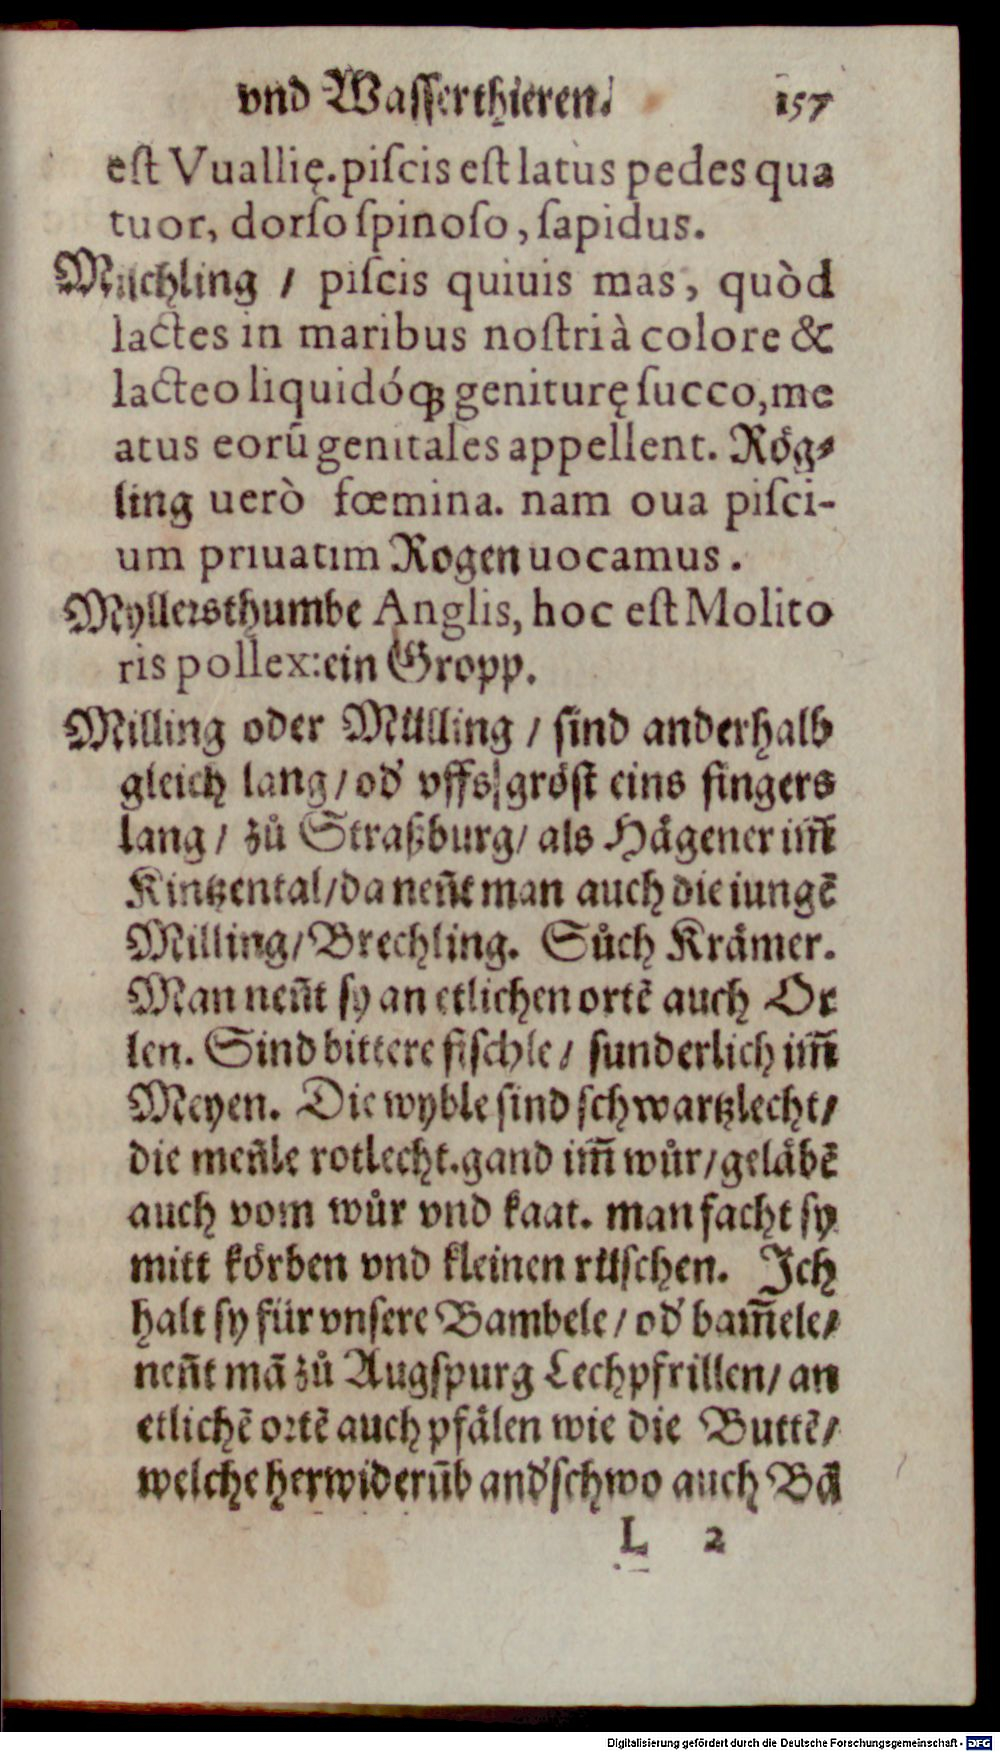 vnd Wasserthieren. 157
est Vuallię. piſcis eſt latus pedes qua
tuor, dorſo ſpinoſo, ſapidus.
Milchling / piſcis quiuis mas, quòd
lactes in maribus noſtri à colore &
lacteo liquidóq́; geniturę ſucco, me
atus eorū genitales appellent. Rög⸗
ling uerò fœmina. nam oua piſci-
um priuatim Rogen uocamus.
Myllersthumbe Anglis, hoc eſt Molito
ris pollex: ein Gropp.
Milling oder Mülling / ſind anderhalb
gleich lang / od' vffs gröſt eins fingers
lang / zů Straßburg / als Hägener im̃
Kintzental / da neñt man auch die iungē
Milling / Brechling. Sůch Krämer.
Man neñt ſy an etlichen ortē auch Or
len. Sind bittere fiſchle / ſunderlich im̃
Meyen. Die wyble ſind ſchwartzlecht /
die meñle rotlecht. gand im̃ wůr / geläbē
auch vom wůr vnd kaat. man facht ſy
mitt körben vnd kleinen rüſchen. Ich
halt ſy für vnſere Bambele / od' bam̃ele /
neñt mā zů Augſpurg Lechpfrillen / an
etlichē ortē auch pfälen wie die Buttē /
welche herwiderūb and'ſchwo auch Bā
L 2
Digitalisierung gefördert durch die Deutsche Forschungsgemeinschaft - DFG